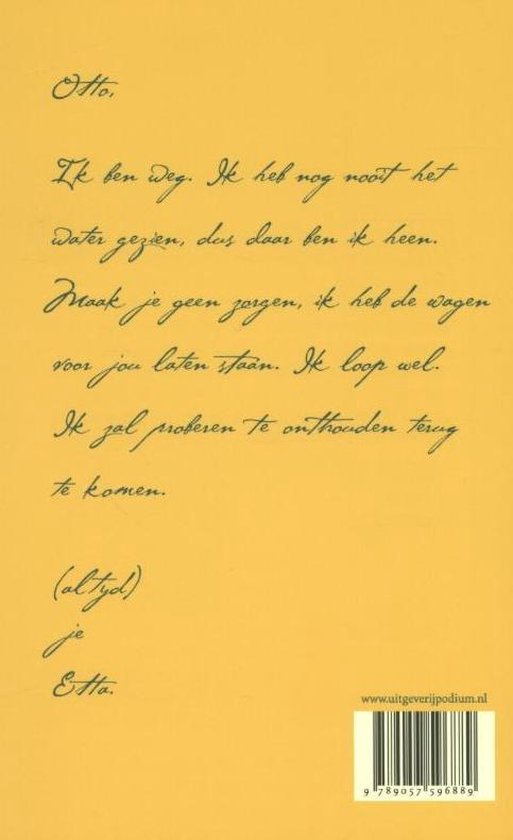 Otto,
Ik ben weg. Ik heb nog nooit het
water gezien, dus daar ben ik heen.
Maak je geen zorgen, ik heb de wagen
voor jou laten staan. Ik loop wel.
Ik zal proberen te onthouden terug
te komen.
(altijd)
je
Etta.
www.uitgeverijpodium.nl
9 789057 596889